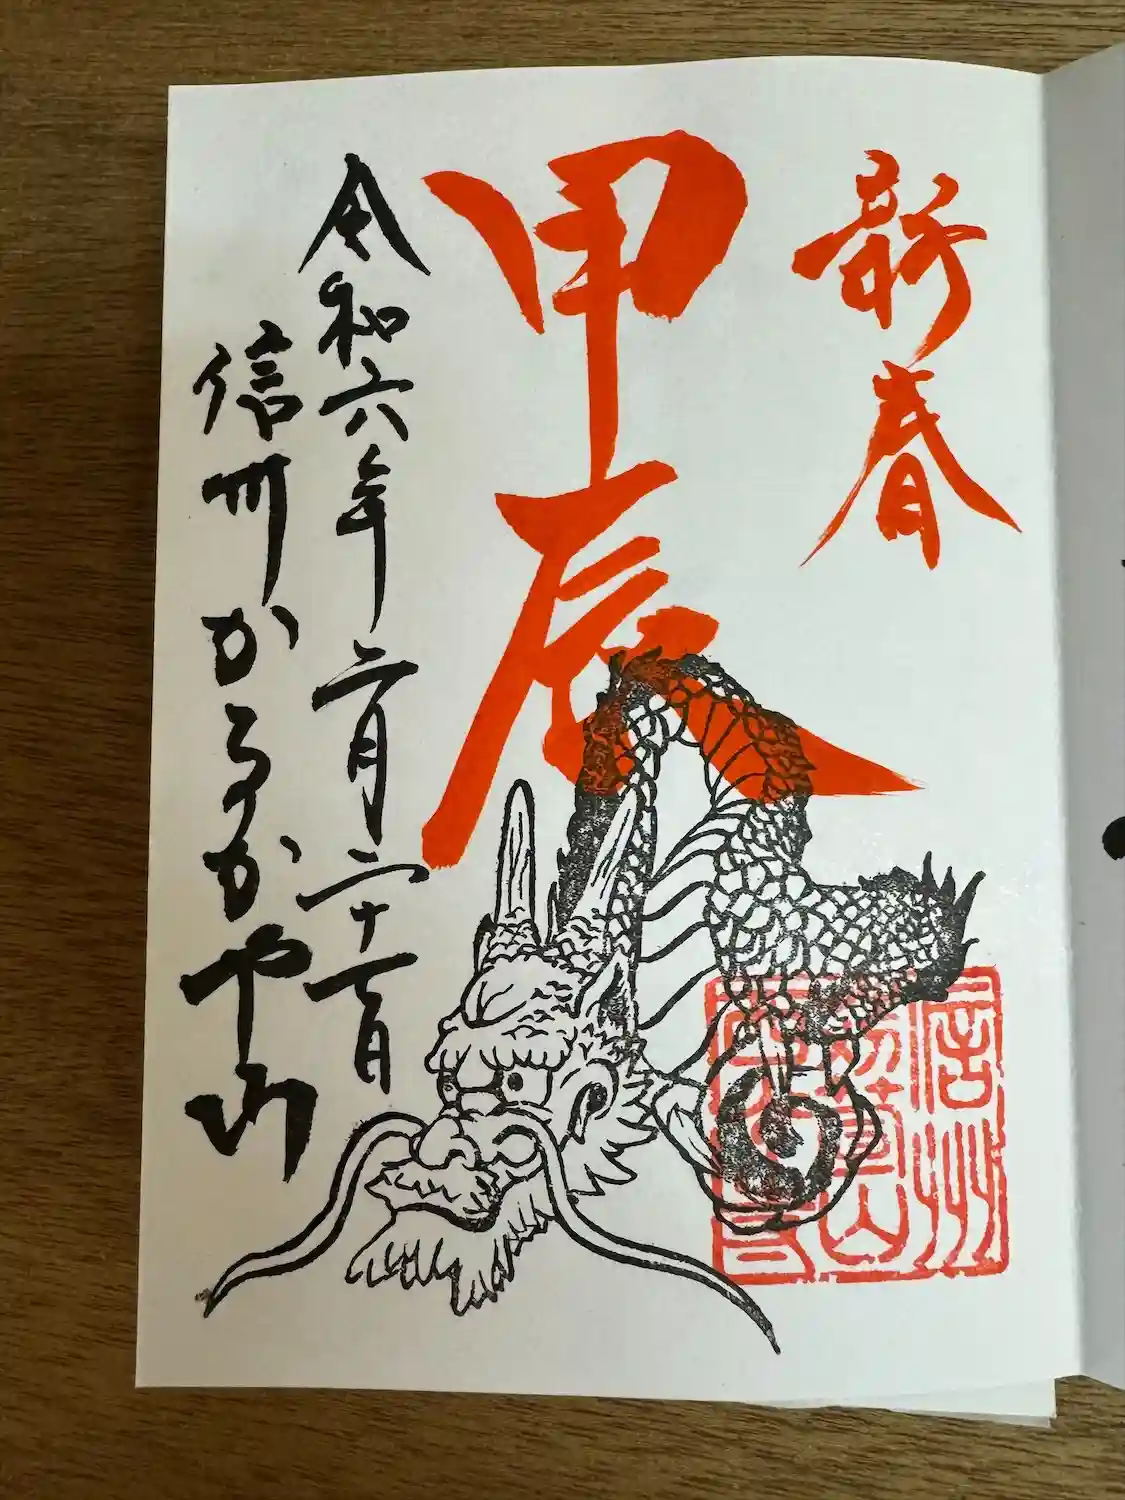 新春
甲辰
令和六年二月二十一日
信州かるかや山
信州
苅萱山